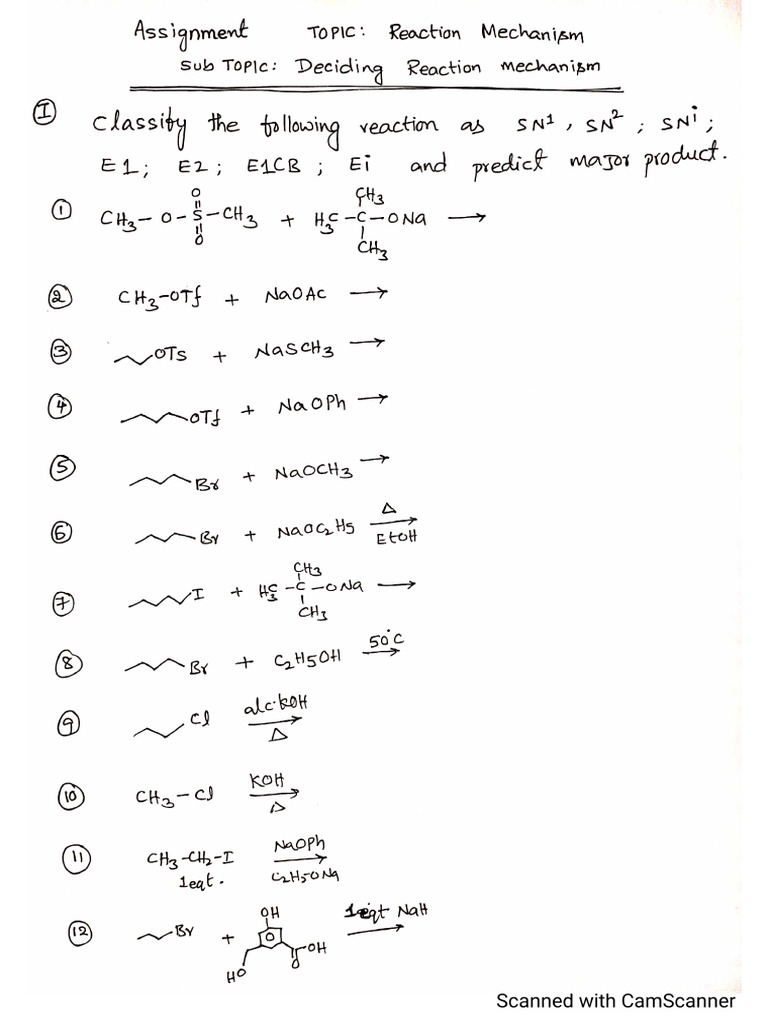 Assignment TOPIC: Reaction Mechanism
SUB TOPIC: Deciding Reaction mechanism
I Classify the following reaction as SN1, SN2; SNi;
E1; E2; E1CB; Ei and predict major product.
1 CH3-O-S-CH3 + H3C-C-ONa →
O
O
CH3
CH3
2 CH3-OTf + NaOAc →
3 OTs + NaSCH3 →
4 OTf + NaOPh →
5 Br + NaOCH3 →
6 Br + NaOC2H5 Δ →
EtOH
7 I + H3C-C-ONa →
CH3
CH3
8 Br + C2H5OH 50°C →
9 Cl alc·KOH →
Δ
10 CH3-Cl KOH →
Δ
11 CH3-CH2-I NaOPh →
1eqt. C2H5ONa
12 Br + OH 1eqt NaH →
O OH
HO
Scanned with CamScanner